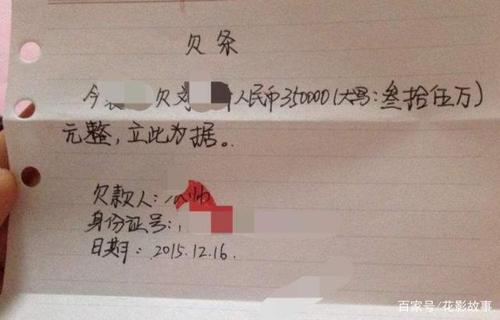 欠条
今 欠 人民币350000(大写:叁拾伍万)
元整,立此为据。
欠款人:
身份证号:
日期:2015.12.16.
百家号/花影故事